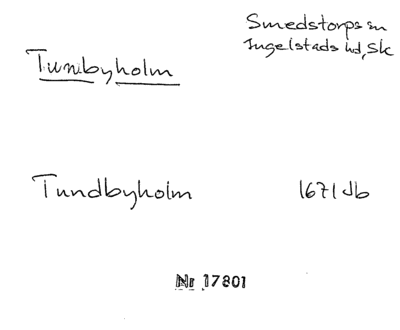 Smedstorps sn
Ingelstads hd, Sk
Tunbyholm
Tundbyholm 1671 Jb
Nr 17801